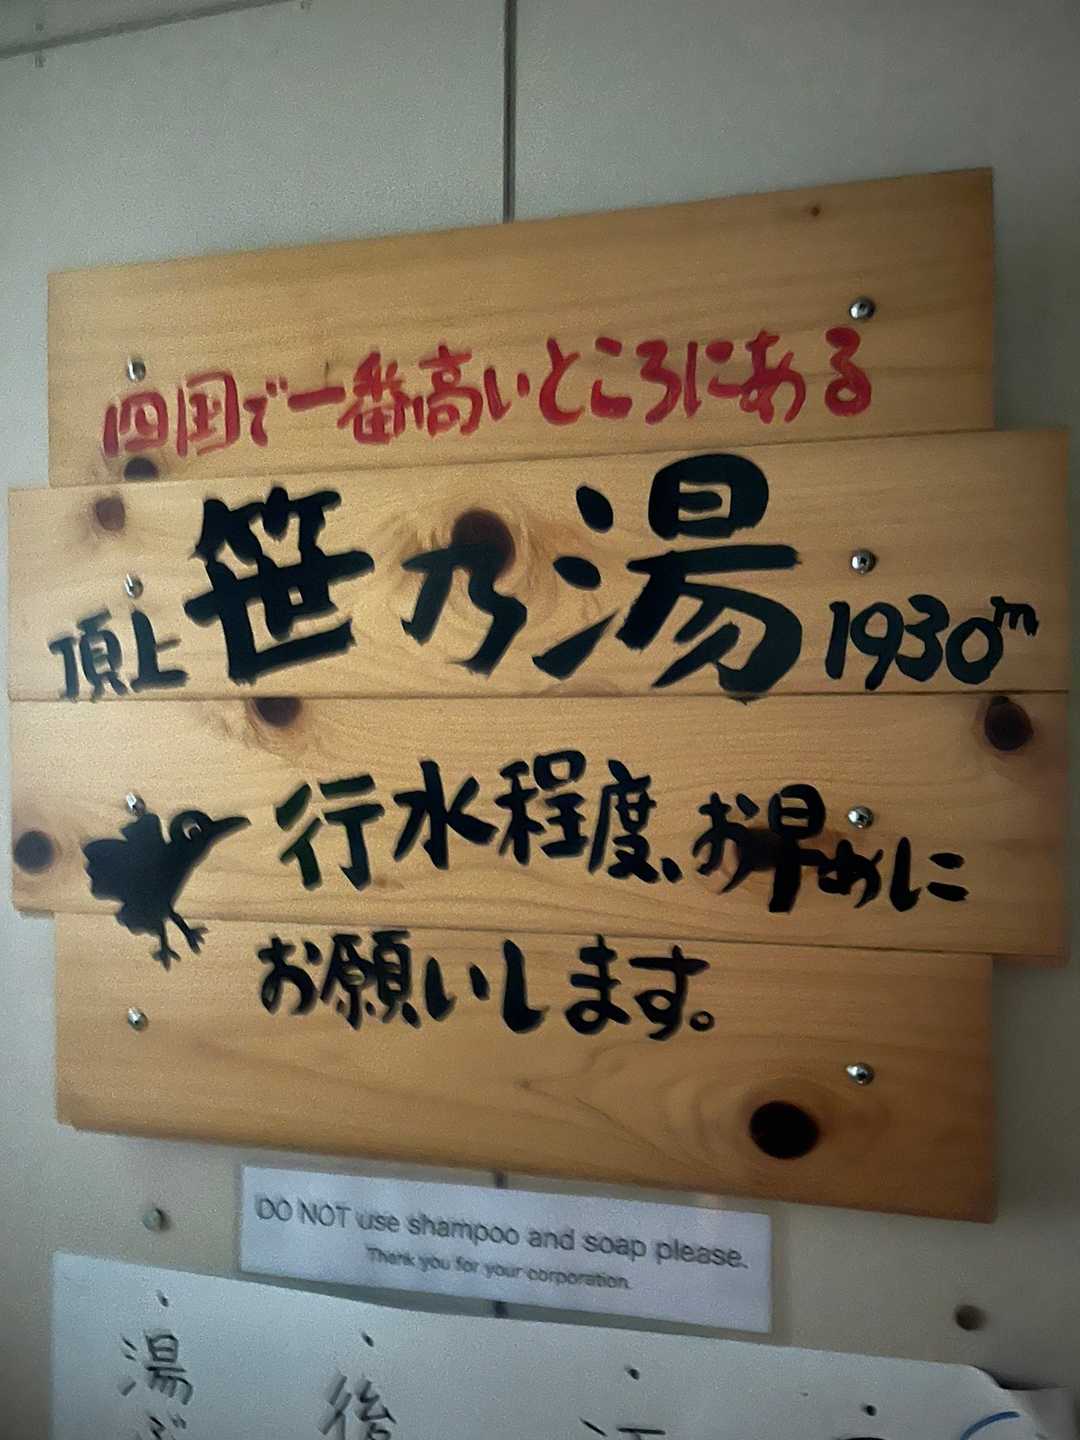 四国で一番高いところにある
頂上 笹乃湯 1930m
行水程度、お早めに
お願いします。
DO NOT use shampoo and soap please.
Thank you for your corporation.
湯
後